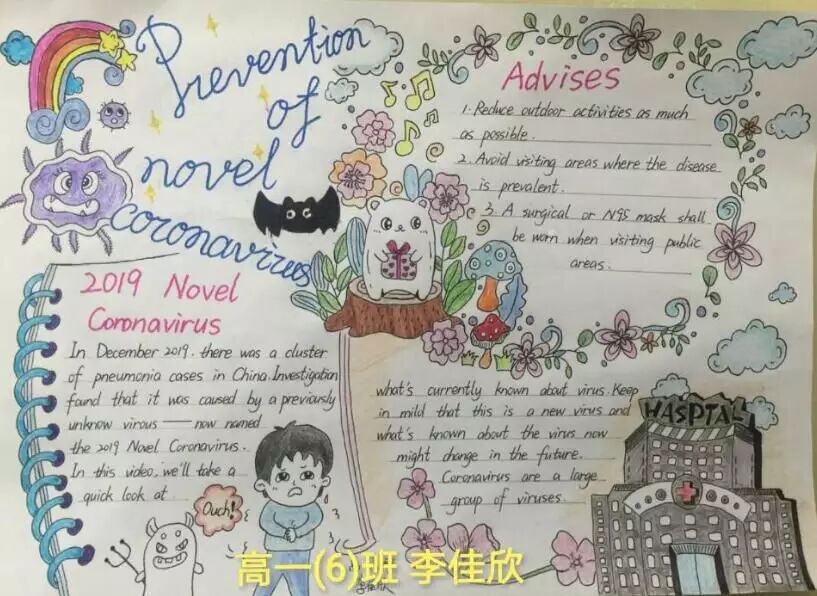 Prevention
of
novel
coronavirues
Advises
1. Reduce outdoor activities as much
as possible.
2. Avoid visiting areas where the disease
is prevalent.
3. A surgical or N95 mask shall
be worn when visiting public
areas.
2019 Novel
Coronavirus
In December 2019. there was a cluster
of pneumonia cases in China. Investigation
found that it was caused by a previously
unknow virous — now named
the 2019 Novel Coronavirus.
In this video, we'll take a
quick look at
Ouch!
what's currently known about virus. Keep
in mild that this is a new virus and
what's known about the virus now
might change in the future.
Coronavirus are a large
group of viruses.
HASPTAL
高一(6)班 李佳欣